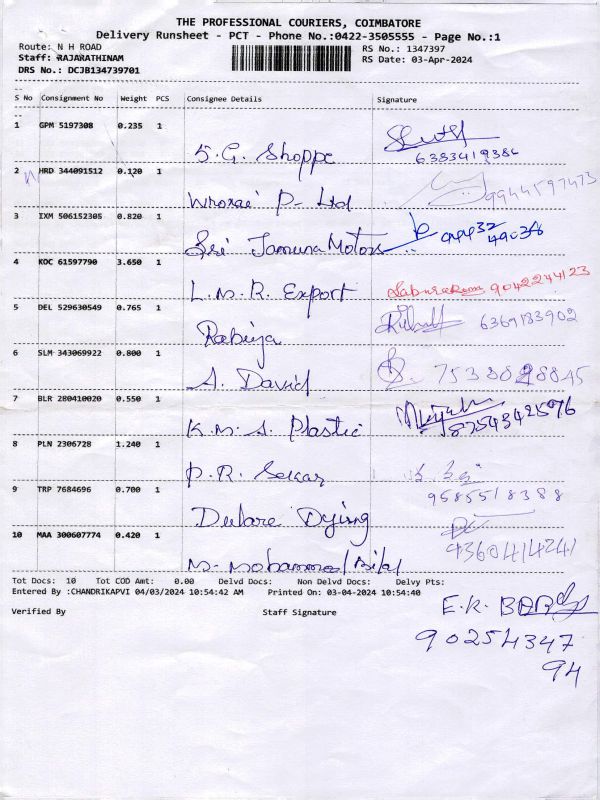 THE PROFESSIONAL COURIERS, COIMBATORE
Delivery Runsheet - PCT - Phone No.:0422-3505555 - Page No.:1
Route: N H ROAD RS No.: 1347397
Staff: RAJARATHINAM RS Date: 03-Apr-2024
DRS No.: DCJB134739701
S No Consignment No Weight PCS Consignee Details Signature
1 GPM 5197308 0.235 1
S.G. Shoppe 6383419386
2 HRD 344091512 0.120 1
P- Ltd 9944597473
3 IXM 506152305 0.820 1
Sri Jamuna Motors 994432
49036
4 KOC 61597790 3.650 1
L.M.R. Export 9042244123
5 DEL 529630549 0.765 1
Rabiya 6369183902
6 SLM 343069922 0.800 1
A. David 7538828845
7 BLR 280410020 0.550 1
K.M.A. Plastic 8754342576
8 PLN 2306728 1.240 1
P.R. Sekar
9585518388
9 TRP 7684696 0.700 1
Dulare Dying
10 MAA 300607774 0.420 1
M. Mohammed Bilal 9360414241
Tot Docs: 10 Tot COD Amt: 0.00 Delvd Docs: Non Delvd Docs: Delvy Pts:
Entered By :CHANDRIKAPVI 04/03/2024 10:54:42 AM Printed On: 03-04-2024 10:54:40
Verified By Staff Signature
E.K.
90254347
94